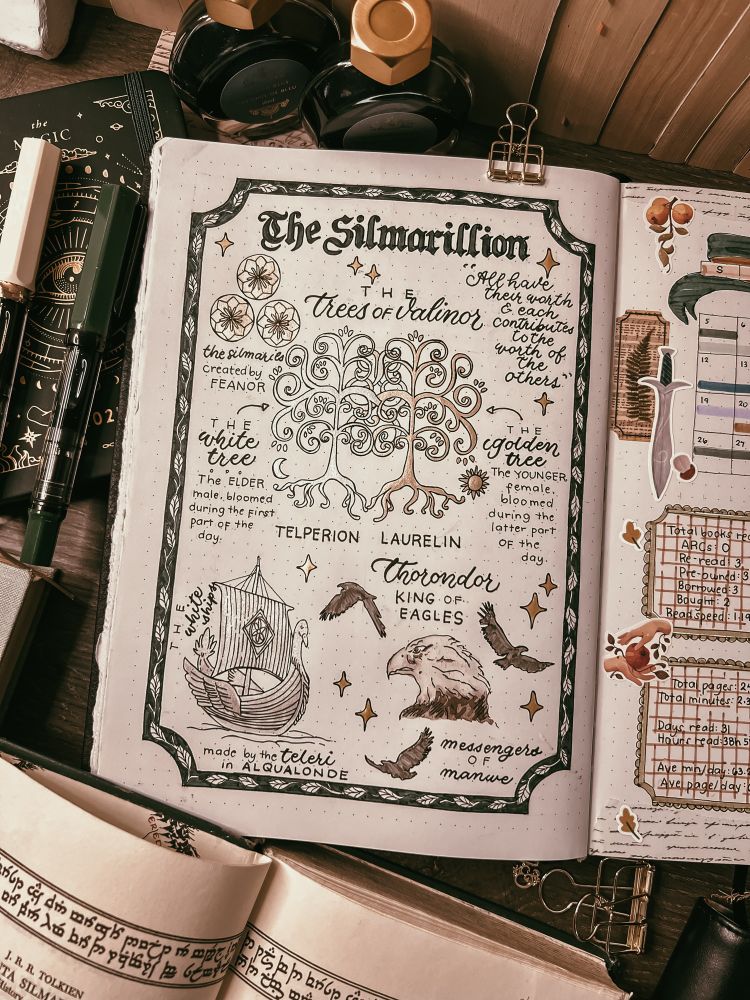 the
MAGIC
202
The Silmarillion
THE
trees of valinor
"All have
their worth
& each
contributes
to the
worth of
the
others"
the silmarils
created by
FEANOR
THE
white
tree
The ELDER
male, bloomed
during the first
part of the
day.
THE
golden
tree
The YOUNGER
female,
bloomed
during the
latter part
OF the
day
TELPERION LAURELIN
THE white ships
made by the teleri
in ALQUALONDE
Thorondor
KING OF
EAGLES
messengers
OF
manwe
S
5
12 13
19 20
26 27
Total books
ARCs: 0
Re-read: 3
Pre-owned:
Borrowed:
Bought: 2
Read speed: 1.19
Total pages:
Total minutes:
Days read: 31
Hours read: 38h
Ave min/day:
Ave page/day:
J. R. R. TOLKIEN